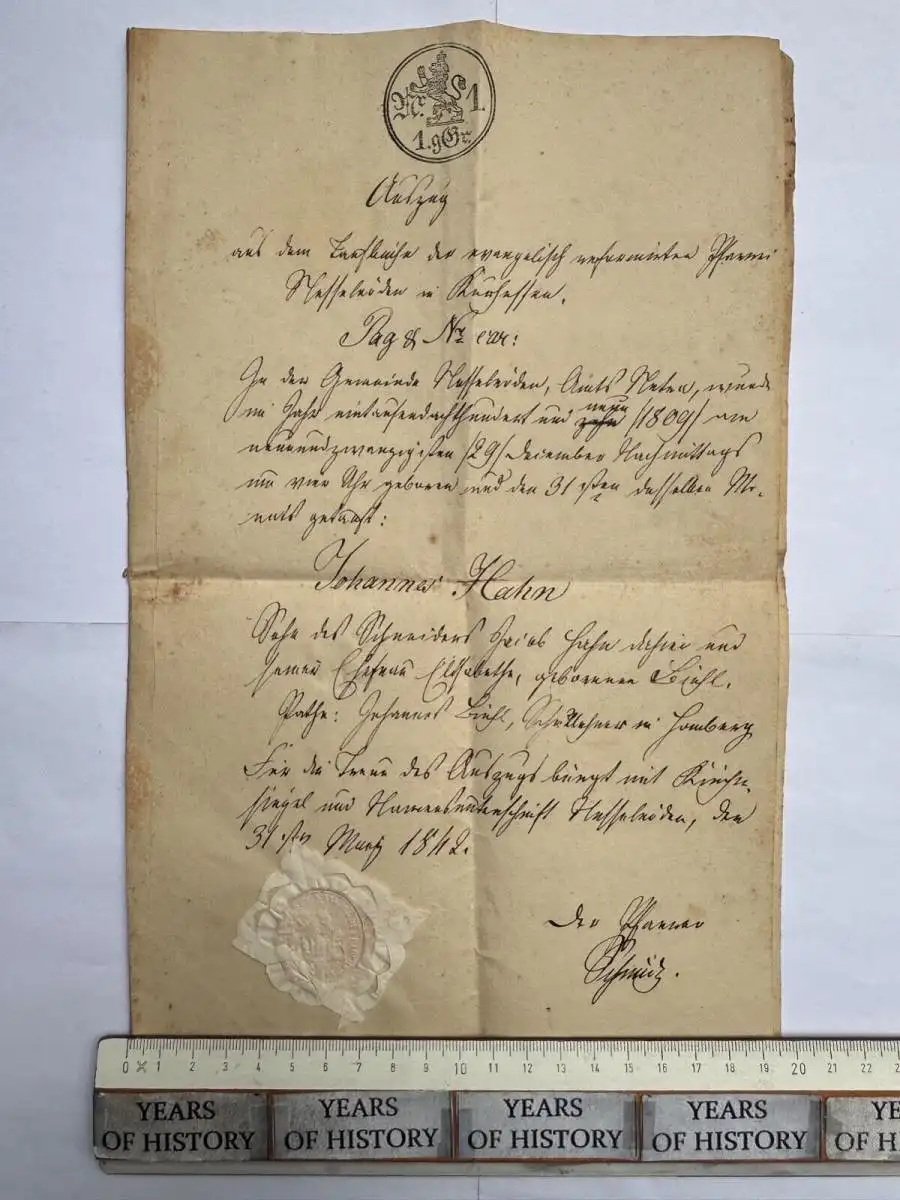 Nr. 1
1. gGr.
Auszug
aus dem Taufbuche der evangelisch reformirten Pfarrei
Nesselröden in Kurhessen.
Pag & Nr
In der Gemeinde Nesselröden, Amts Netra, wurde
im Jahr eintausendachthundert und zehn neun /1809/ am
neunundzwanzigsten /29/ December Nachmittags
um vier Uhr geboren und den 31 sten desselben Mo-
nats getauft:
Johannes Hahn
Sohn des Schneiders Jacob Hahn dahier und
seiner Ehefrau Elisabethe, geborenen Diehl.
Pathe: Johannes Diehl, in Homberg
Für die Treue des Auszugs bürgt mit Kirchen-
siegel und Namensunterschrift Nesselröden, den
31 sten März 1842.
Der Pfarrer
0 1 2 3 4 5 6 7 8 9 10 11 12 13 14 15 16 17 18 19 20 21 22
YEARS OF HISTORY
YEARS OF HISTORY
YEARS OF HISTORY
YEARS OF HISTORY
YE
OF H